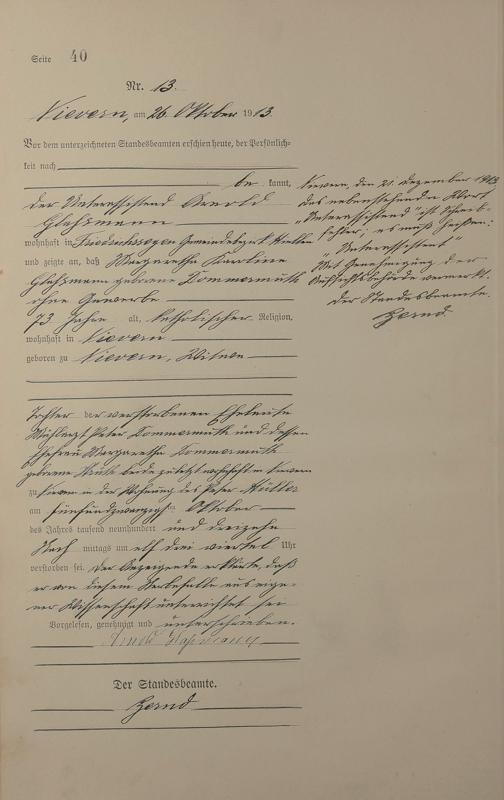 Seite 40
Nr. 13.
Nievern, am 26. Oktober 1913.
Vor dem unterzeichneten Standesbeamten erschien heute, der Persönlich-
keit nach
be kannt,
der Unterassistend Arnold
wohnhaft in Friedrichssegen Gemeindebezirk
und zeigte an, daß Margaretha Karoline
geborene Kommermuth
ohne Gewerbe
73 Jahre alt, katholischer Religion,
wohnhaft in Nievern
geboren zu Nievern, Witwe
Tochter der verstorbenen Eheleute
Peter Kommermuth und dessen
Ehefrau Margaretha Kommermuth
geborene beide zuletzt wohnhaft in Nievern
zu Nievern in der Wohnung des Peter Müller
am fünfundzwanzigsten Oktober
des Jahres tausend neunhundert und dreizehn
Nach mittags um elf drei viertel Uhr
verstorben sei. Der Anzeigende erklärte, daß
er von diesem Sterbefalle aus eige-
ner Wissenschaft unterrichtet sei
Vorgelesen, genehmigt und unterschrieben.
Arnold
Der Standesbeamte.
Nievern, den 21. Dezember 1913
Das nebenstehende Wort
„Unterassistend" ist Schreib-
fehler; es muß heißen:
„Unterassistent"
Mit Genehmigung der
Aufsichtsbehörde vermerkt.
Der Standesbeamte.